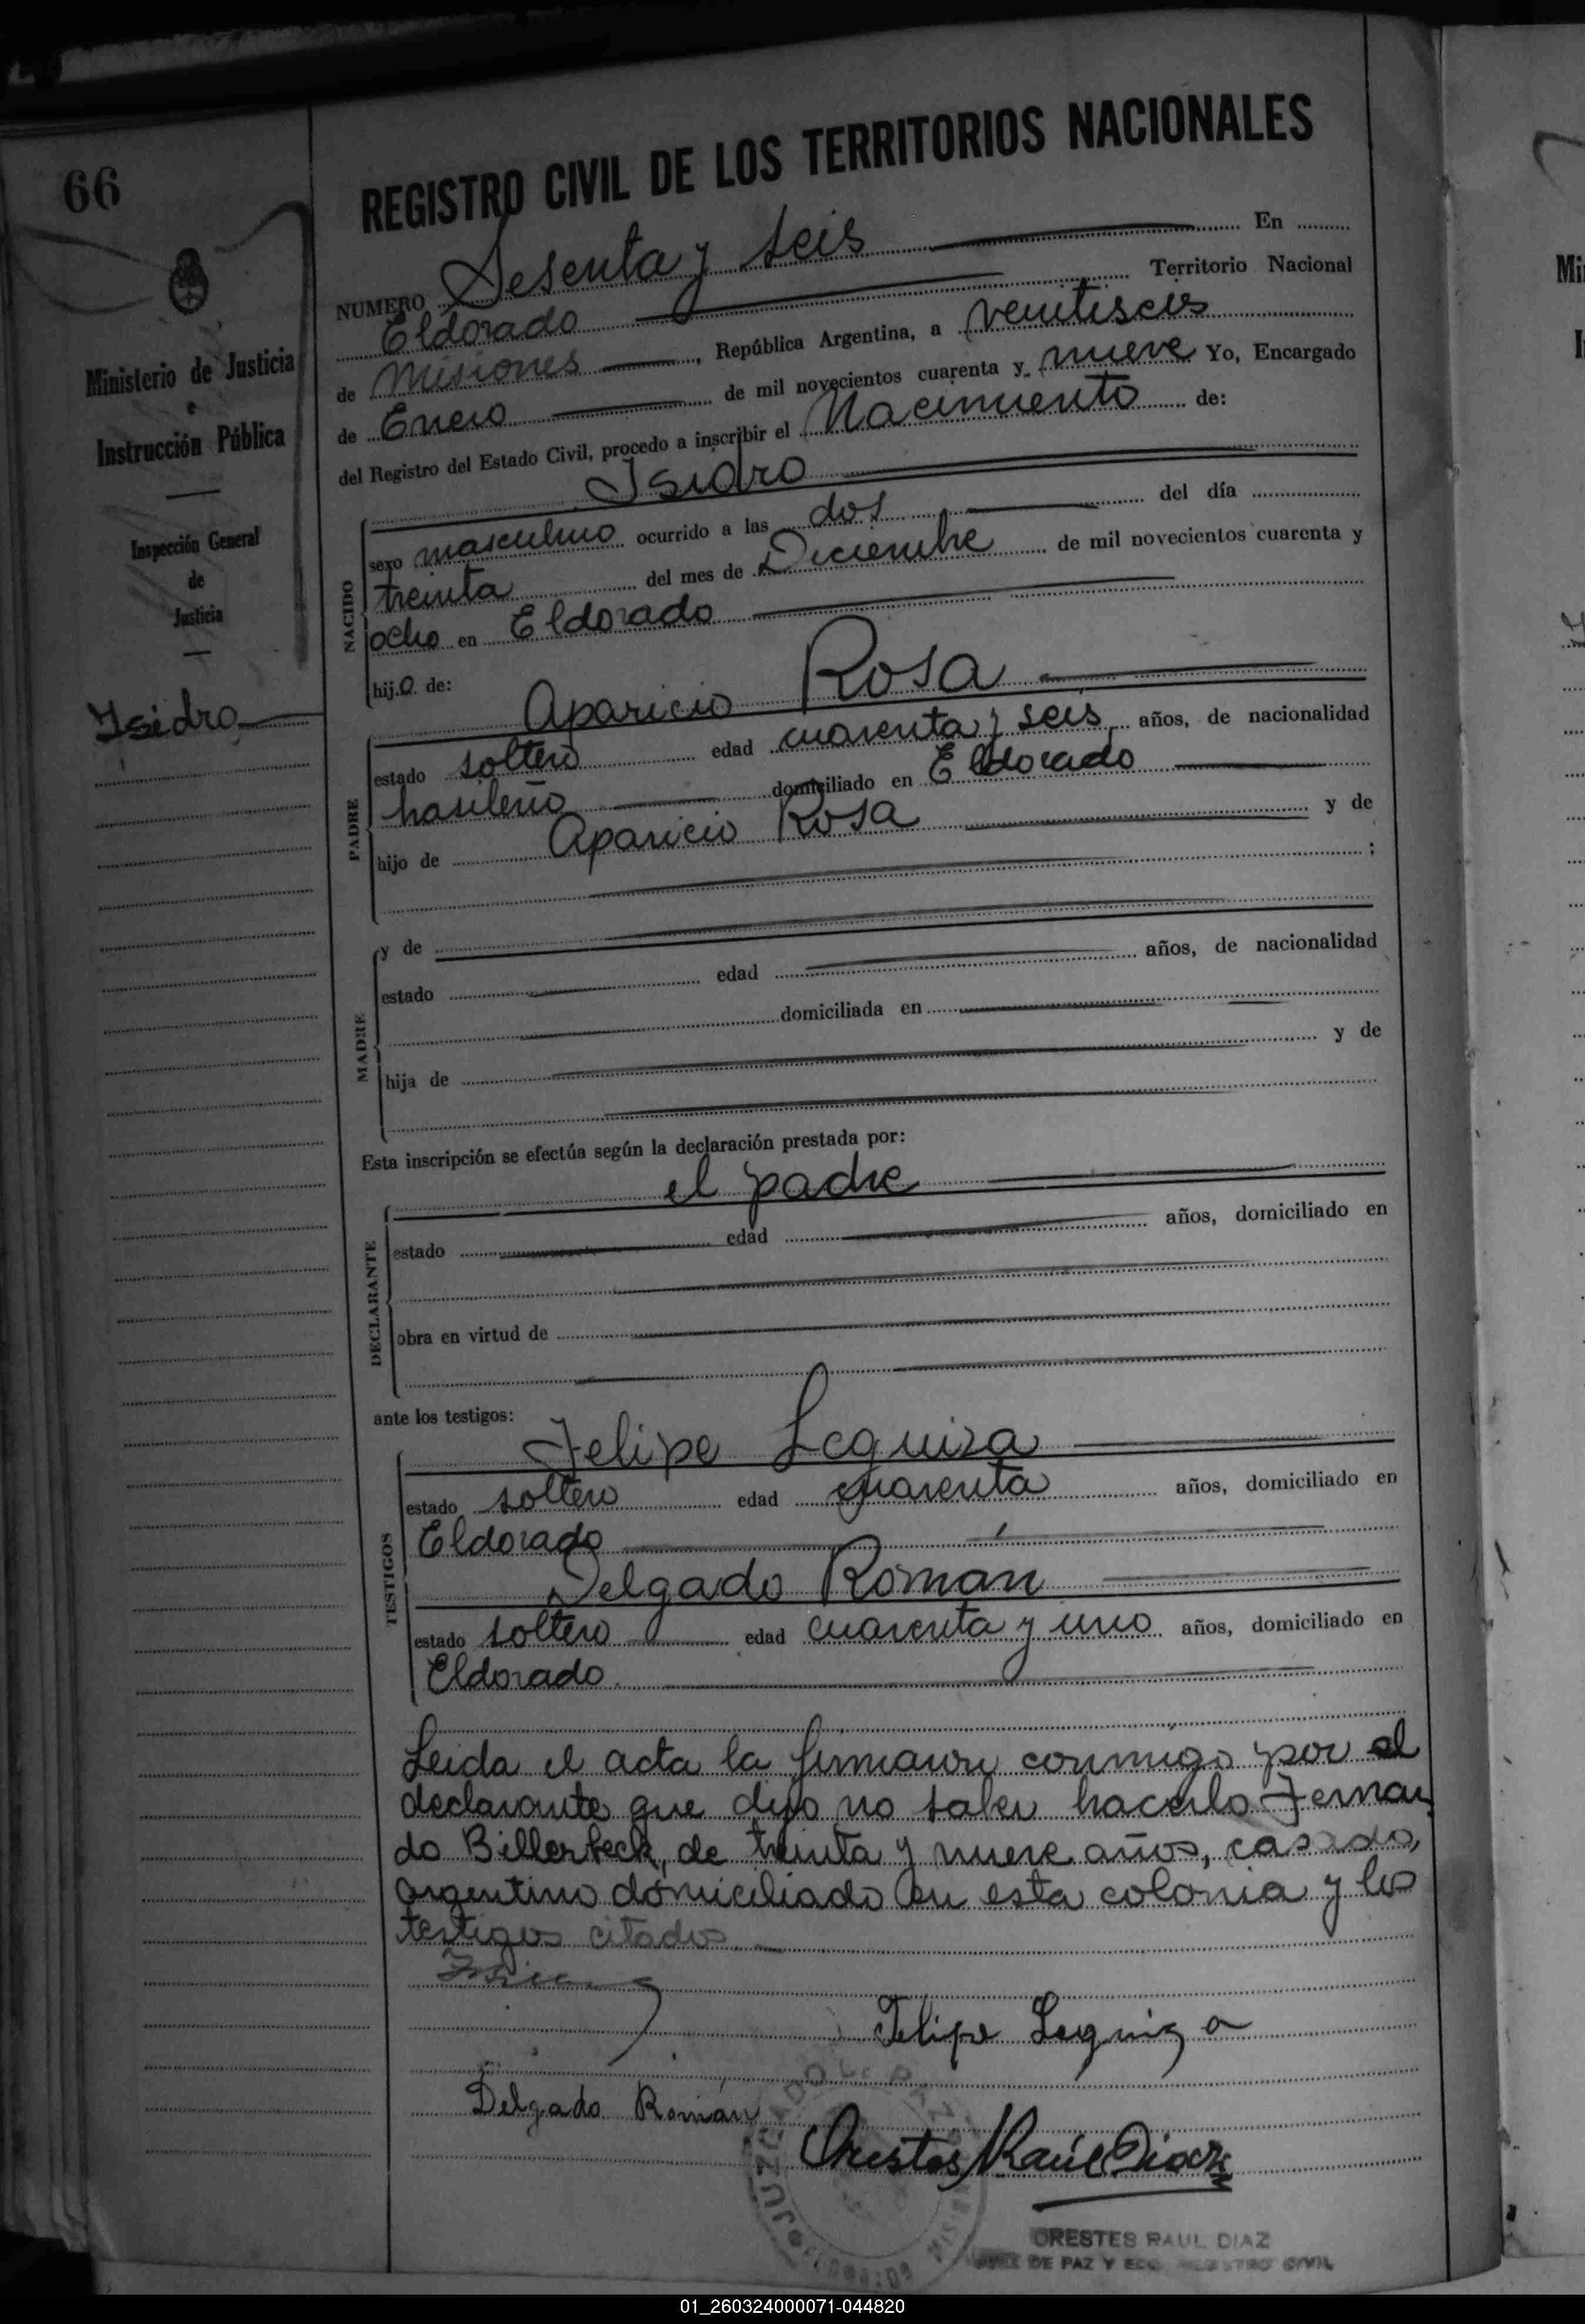 66
REGISTRO CIVIL DE LOS TERRITORIOS NACIONALES
NUMERO Sesenta y seis En
Eldorado Territorio Nacional
de Misiones, República Argentina, a veintiseis
de Enero de mil novecientos cuarenta y nueve Yo, Encargado
del Registro del Estado Civil, procedo a inscribir el Nacimiento de:
Ministerio de Justicia
e
Instrucción Pública
Inspección General
de
Justicia
Ysidro
Isidro
NACIDO
sexo masculino ocurrido a las dos del día
treinta del mes de Diciembre de mil novecientos cuarenta y
ocho en Eldorado
hijo de:
Aparicio Rosa
PADRE
estado soltero edad cuarenta y seis años, de nacionalidad
brasileño domiciliado en Eldorado
hijo de Aparicio Rosa y de
;
y de
MADRE
estado edad años, de nacionalidad
domiciliada en
hija de y de
Esta inscripción se efectúa según la declaración prestada por:
el padre
DECLARANTE
estado edad años, domiciliado en
obra en virtud de
ante los testigos:
Felipe Leguiza
TESTIGOS
estado soltero edad cuarenta años, domiciliado en
Eldorado
Delgado Román
estado soltero edad cuarenta y uno años, domiciliado en
Eldorado
Leida el acta la firmaron conmigo por el
declarante que dijo no saber hacerlo Fernan
do Billerbeck, de treinta y nueve años, casado,
argentino domiciliado en esta colonia y los
testigos citados
Felipe Leguiza
Delgado Román
Orestes Raúl Diaz
JUZGADO DE PAZ
ORESTES RAUL DIAZ
JUEZ DE PAZ Y ECG. REGISTRO CIVIL
01_260324000071-044820